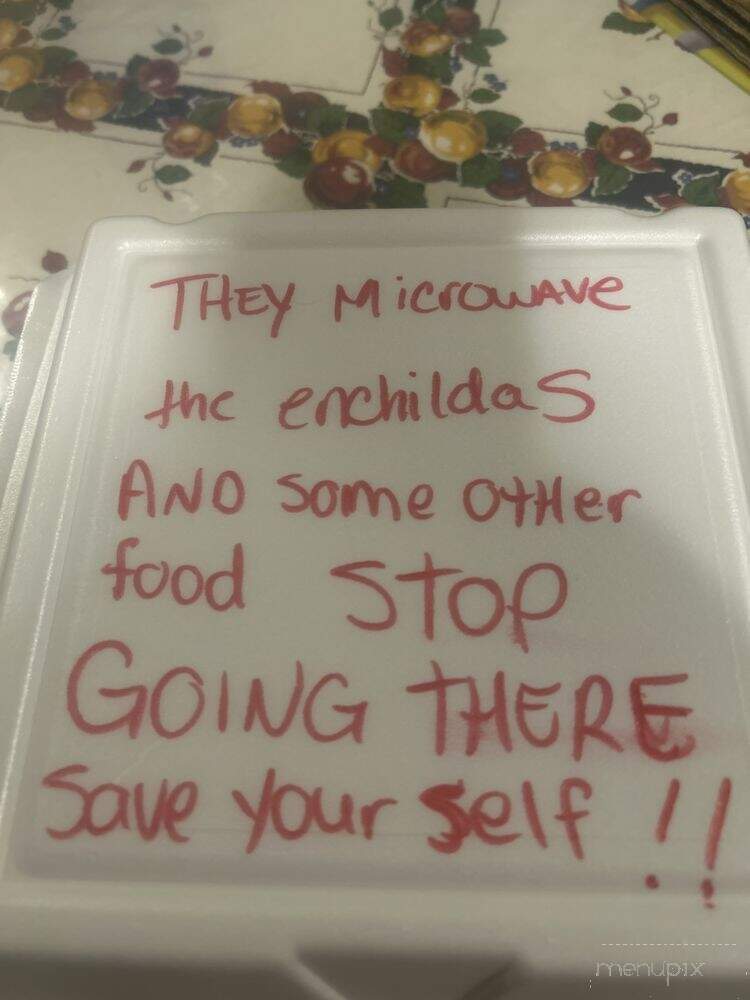 THEY MicrowAve
the enchildaS
AND some OtHer
food STOP
GOING THERE
Save your self !!
menupix